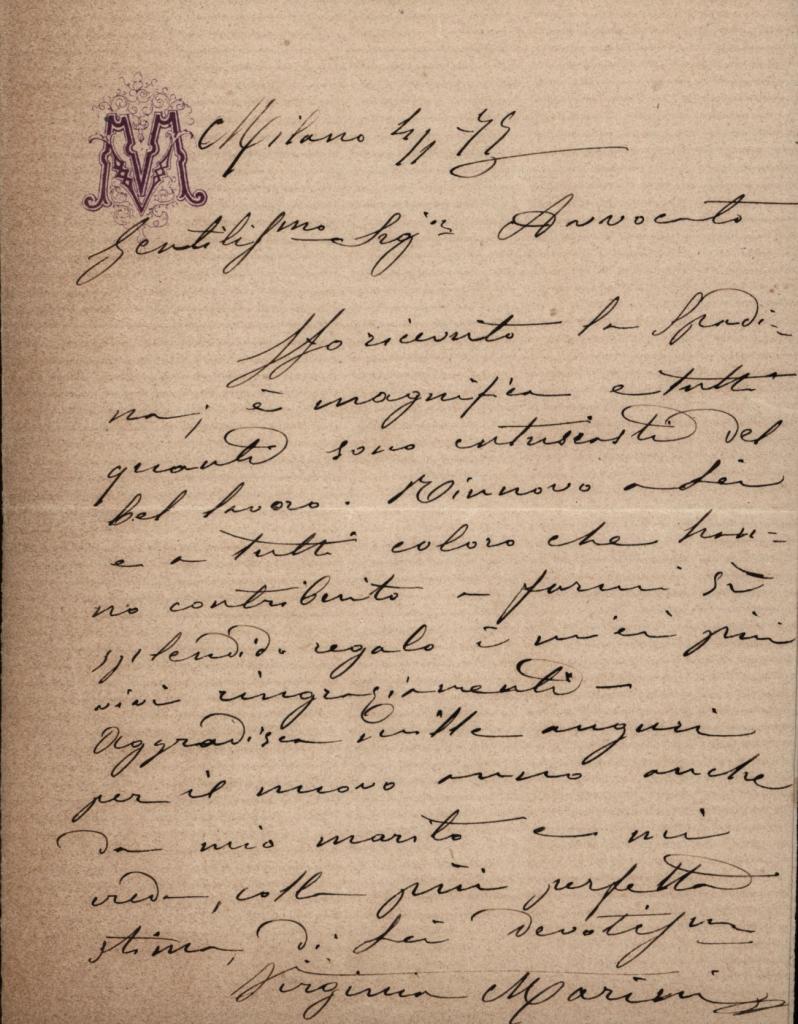 M
Milano 4/1 -75
Gentiliſsmo Sigor Avvocato
Ho ricevuto la Spadi-
na; è magnifica e tutti
quanti sono entusiasti del
bel lavoro. Rinnovo a Lei
e a tutti coloro che han-
no contribuito a farmi sì
splendido regalo i miei più
vivi ringraziamenti -
Aggradisca mille auguri
per il nuovo anno anche
da mio marito e mi
creda, colla più perfetta
stima, di Lei devotiſma
Virginia Marini